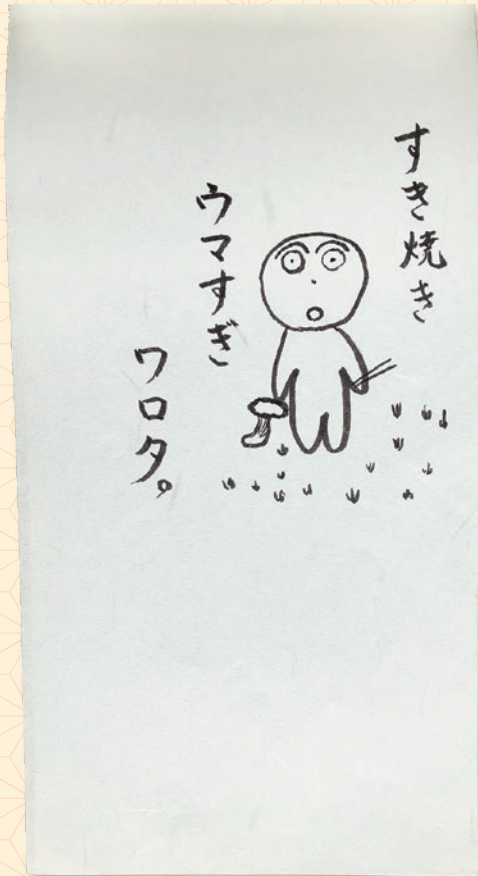 すき焼き
ウマすぎ
ワロタ。